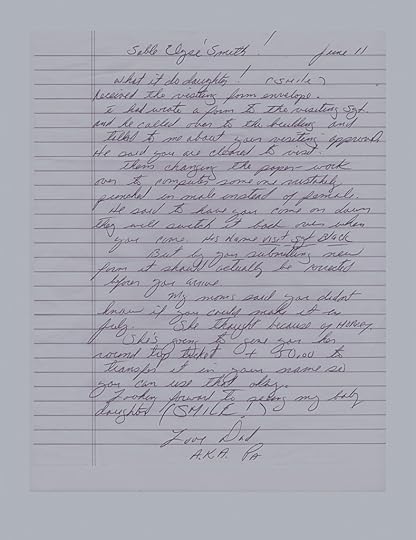 Sable Elyse Smith! June 11
What it do daughter! (SMILE)
Received the visiting form envelope.
I had wrote a form to the visiting Sgt.
and he called over to the building and
talked to me about your visiting approval.
He said you are cleared to visit
them changing the paper-work
over to computer someone mistakely
punched in male instead of female.
He said to have you come on down
they will switch it back over when
you come. His name Visit Sgt Black
But by you submitting new
form it should actually be
before you arrive.
My moms said you didnt
know if you could make it in
july. She thought because of money.
She's going to give you her
round trip ticket + 50.00 to
transfer it in your name so
you can use that okay.
Looking forward to seeing my baby
daughter (SMILE!)
Love Dad
A.K.A. Pa